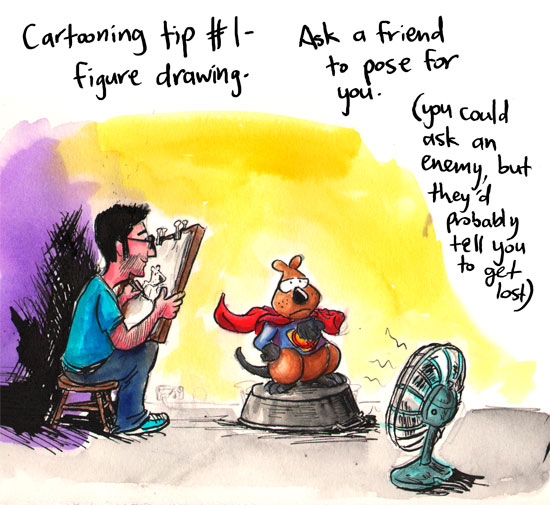 Cartooning tip #1-
figure drawing.
Ask a friend
to pose for
you.
(you could
ask an
enemy, but
they'd
probably
tell you
to get
lost)